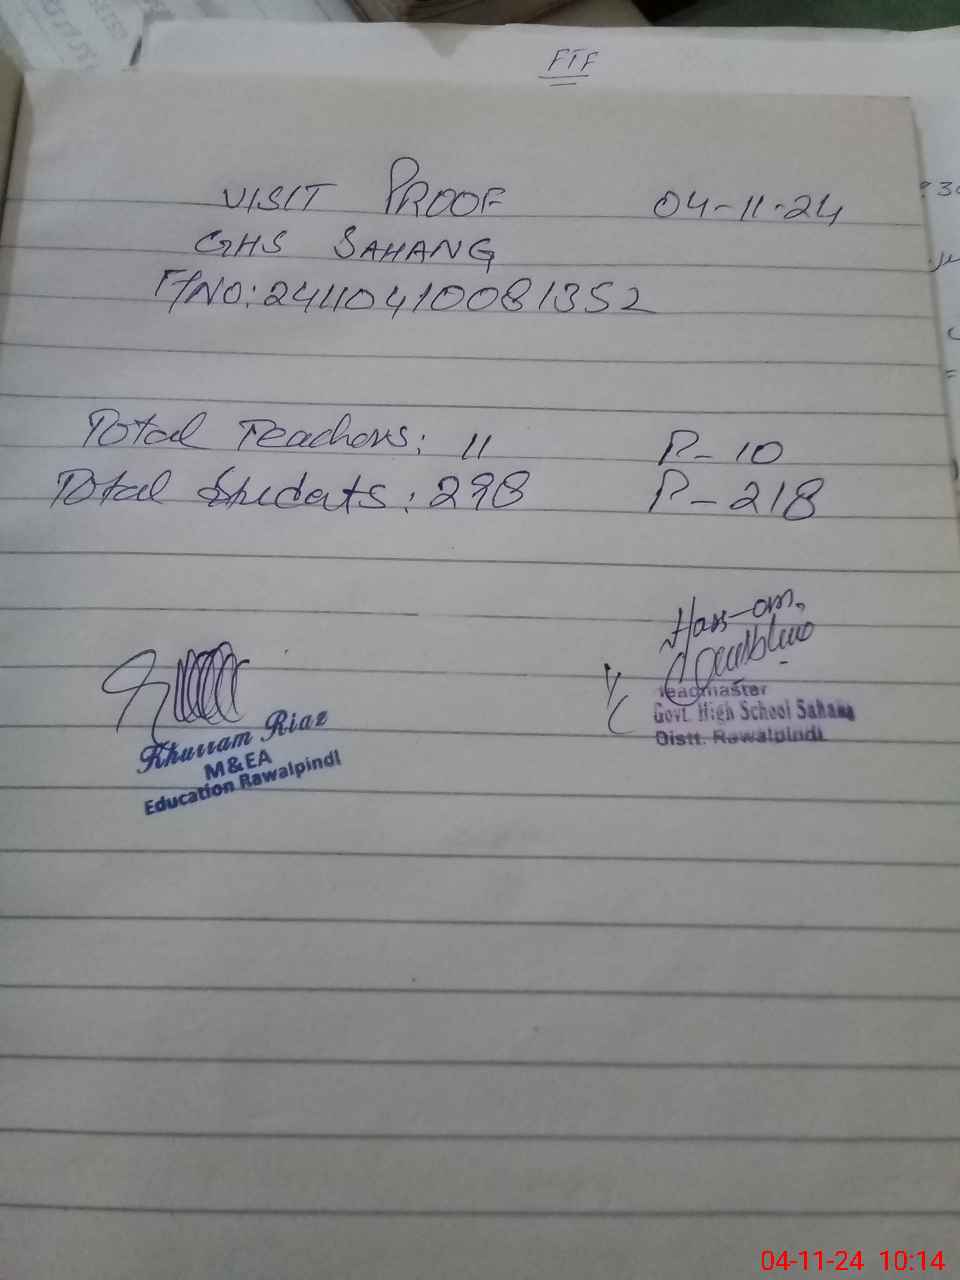 FTF
VISIT PROOF 04-11-24
GHS SAHANG
F/NO: 24110410081352
Total Teachers: 11 P-10
Total Students: 298 P-218
Khurram Riaz
M&EA
Education Rawalpindi
Headmaster
Govt. High School Sahang
Distt. Rawalpindi
04-11-24 10:14